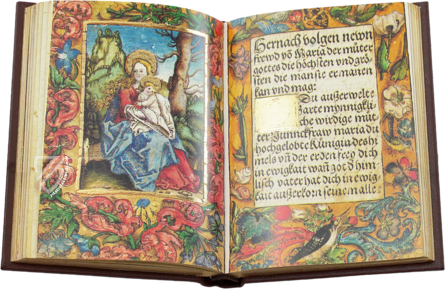 Hernach volgen newn
frewd võ Maria der mũter
gottes die höchsten vnd grö
sten die man sie ermanen
kan vnd mag:
Du außerwelte
zarte mynnigkli
che wirdige mü
ter Junnckfraw maria du
hochgelobte Künigin des hi
mels vñ der erden frey dich
in ewigkait wañ got d him
lisch vater hat dich in ewig
kait außerkorn seinem alle